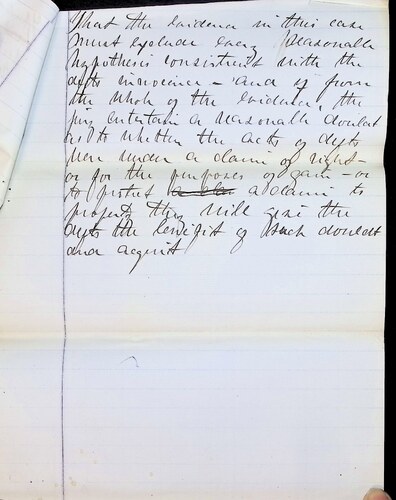 That the Evidence in this case
must exclude every Reasonable
hypothesis consistent with the
defts innocence - and if from
the whole of the Evidence, the
jury entertain a reasonable doubt
as to whether the acts of defts
were under a claim of right -
or for the purposes of gain - or
to protect a claim to
property they will give the
defts the benefit of such doubt
and acquit